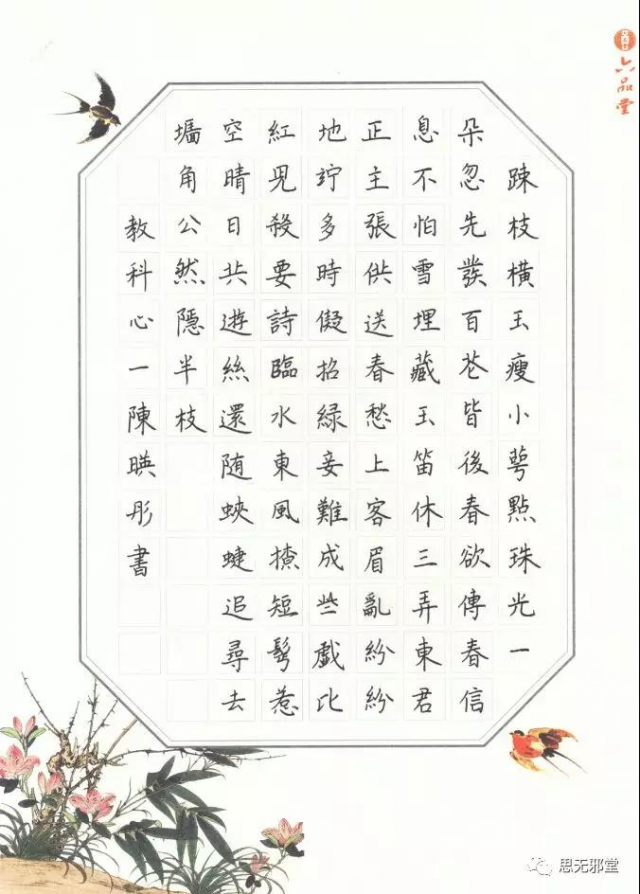 踈枝橫玉瘦小萼點珠光一
朵忽先發百芲皆後春欲傳春信
息不怕雪埋藏玉笛休三弄東君
正主張供送春愁上客眉亂紛紛
地竚多時儗招綠妾難成些戲比
紅兒殺要詩臨水東風撩短鬢惹
空晴日共遊絲還随蛺蜨追尋去
墻角公然隱半枝
教科心一陳暎彤書
六品堂
思无邪堂